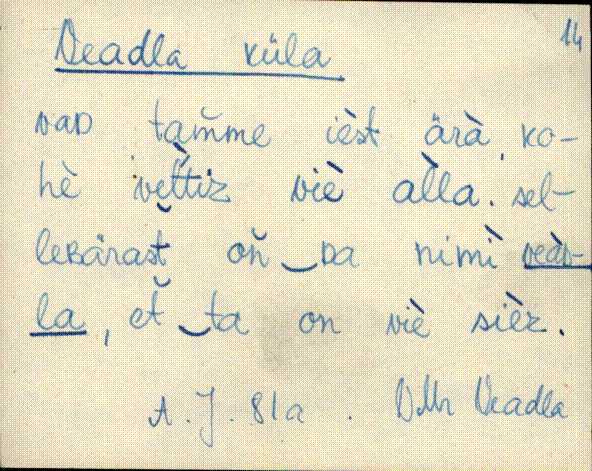 Veadla küla 14
vaᴅ tam̆me ièst ärà, ko-
hè vet̆tiz viè al̀la. sel-
leʙärast̆ on̆‿ᴅa nimì veàᴅ-
la, et̆‿ta on viè sièz.
A. J. 81a. VMr Veadla